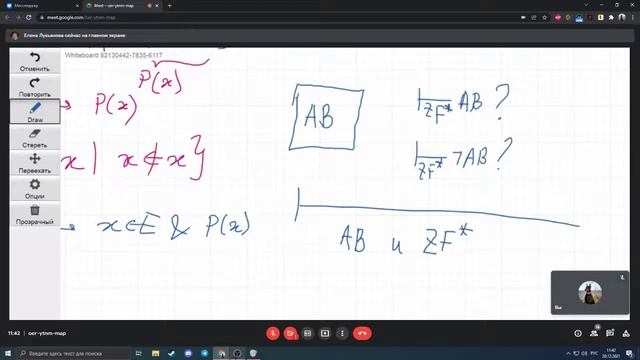 Мессенджер
Meet – oer-ytnm-map
meet.google.com/oer-ytnm-map
Елена Лукьянова сейчас на главном экране
Whiteboard 82130442-7835-6117
Отменить
Повторить
Draw
Стереть
Переехать
Опции
Прозрачный
P(x)
→ P(x)
x | x ∉ x}
→ x ∈ E & P(x)
AB
⊢ ZF* AB ?
⊢ ZF* ¬AB ?
AB и ZF*
Вы
11:42 | oer-ytnm-map
Введите здесь текст для поиска
РУС
11:42
20.12.2021